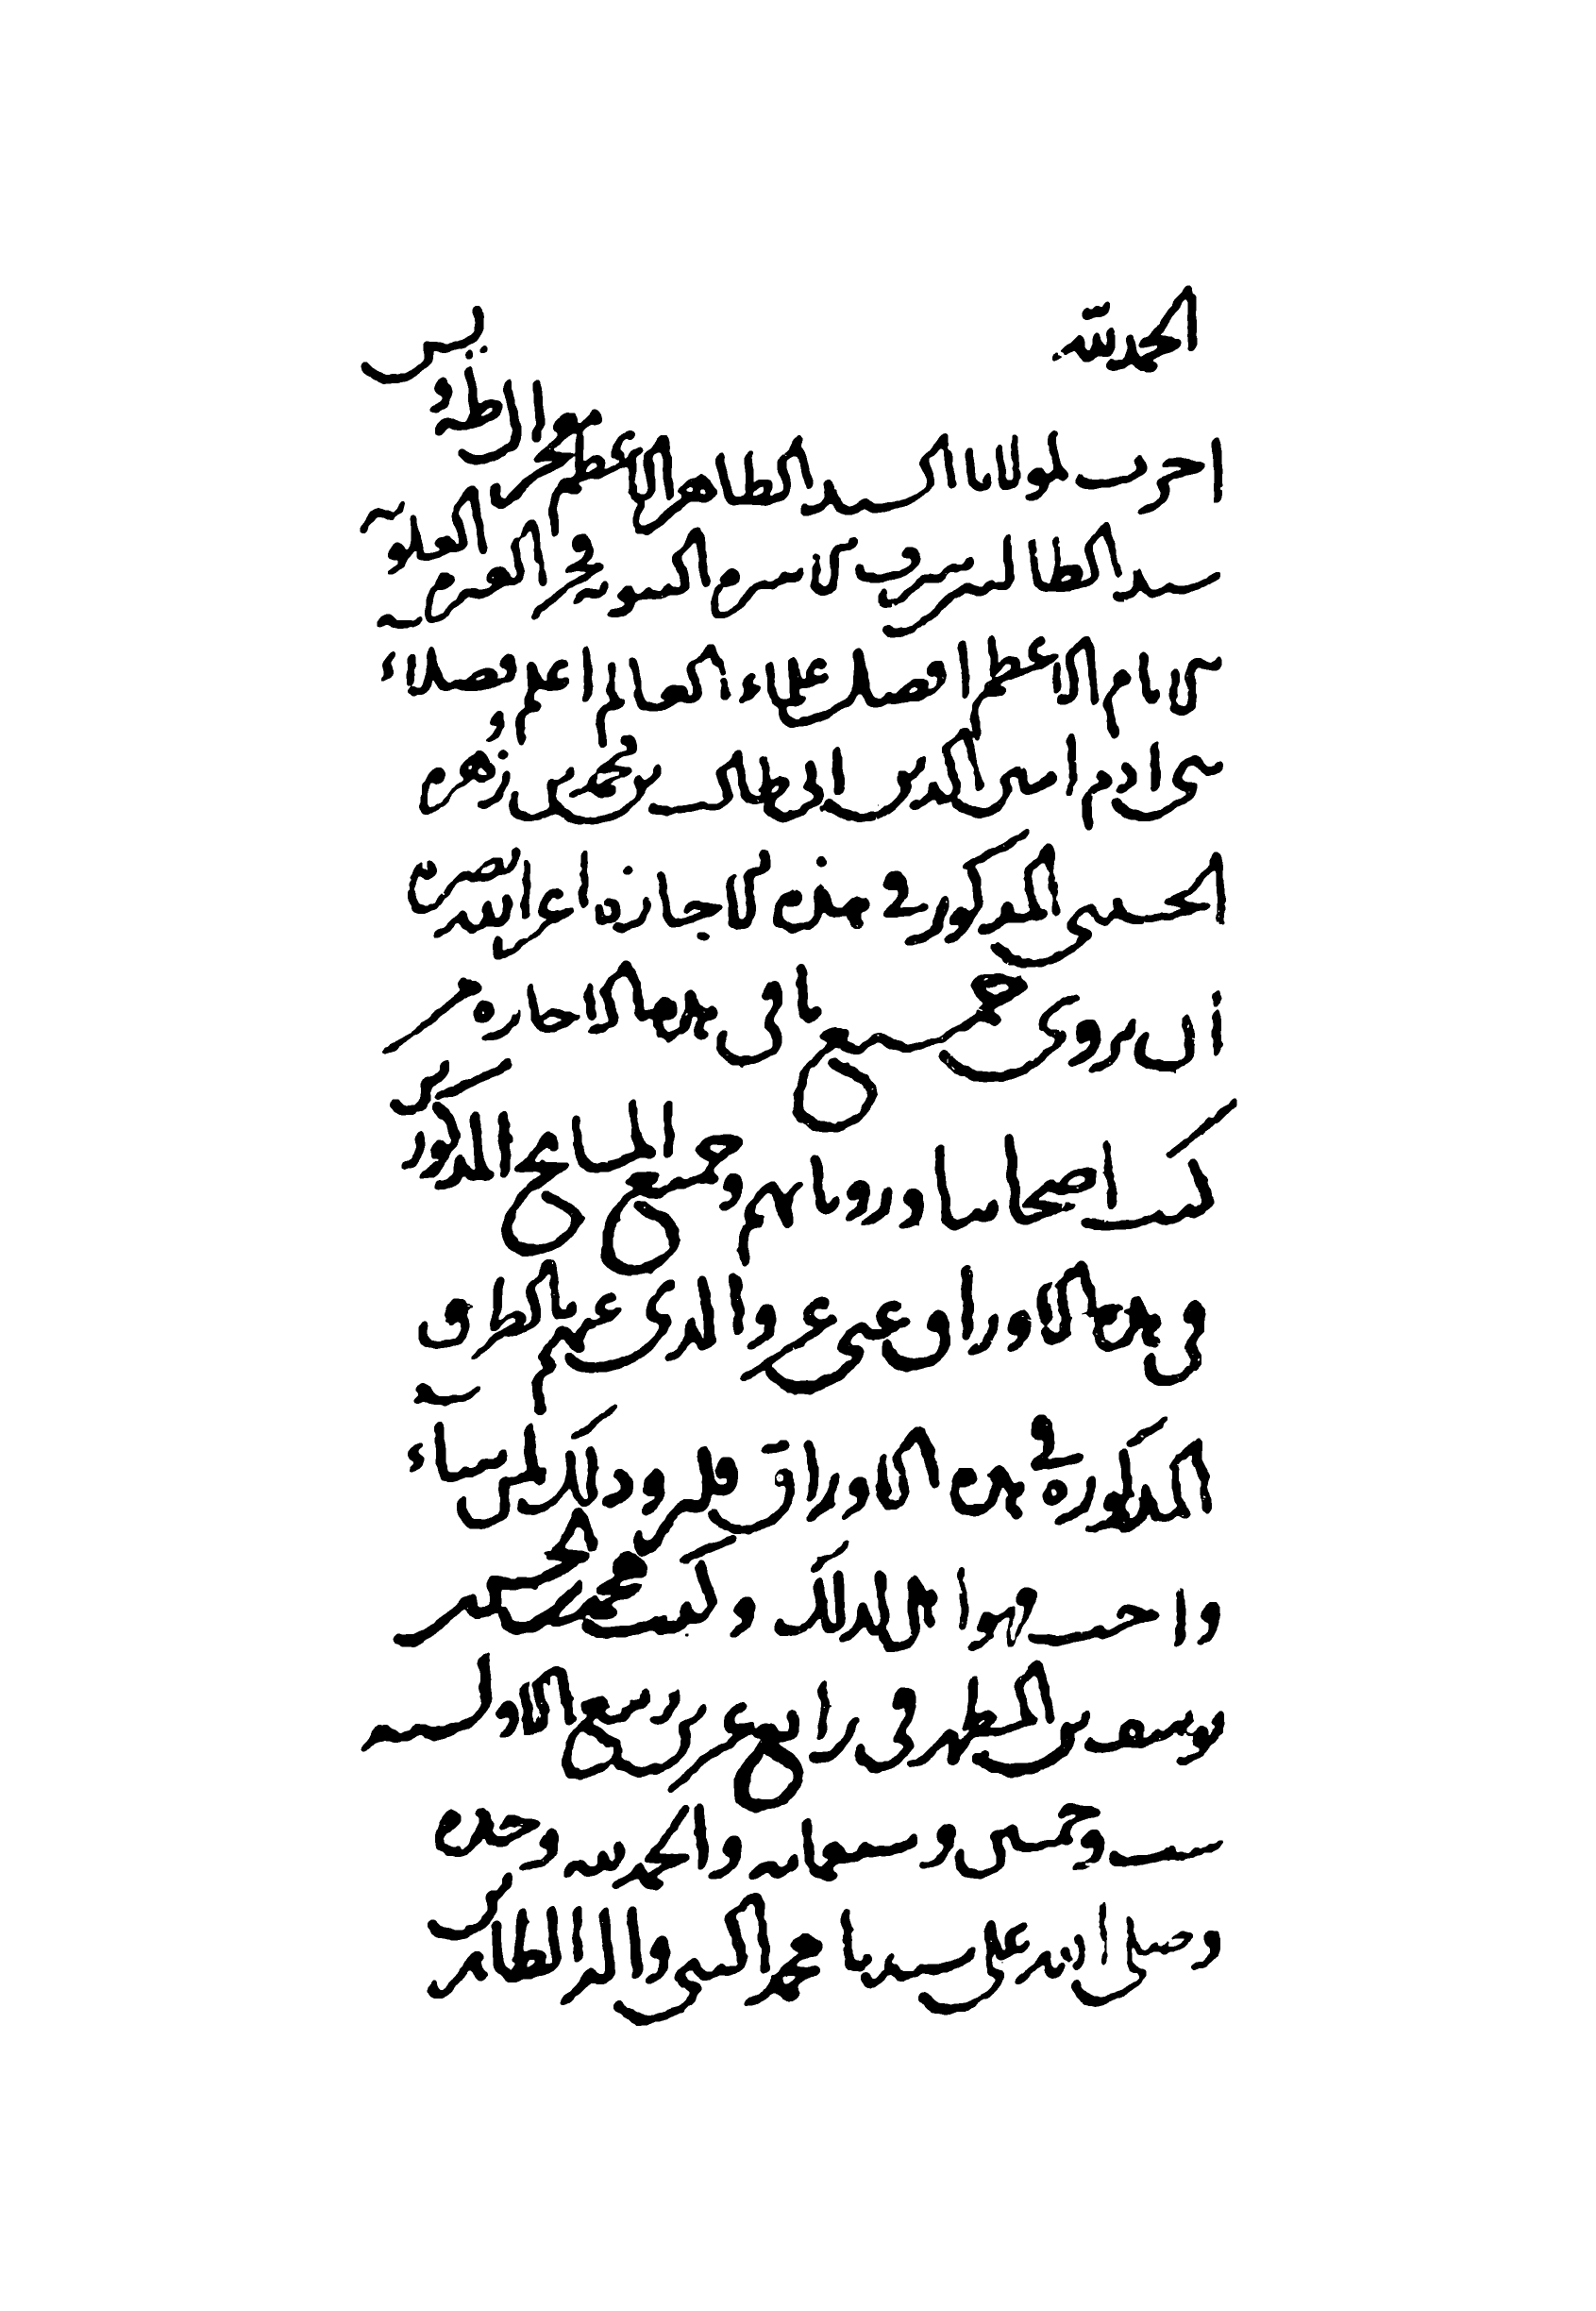 الحمد لله
اجزت لمولانا السيد الطاهر الاعظم فخر ال طه و يس
سيد الطالبيين شرف الاسرة النبوية فخر العترة العلوية
الامام الاعظم افضل علماء العالم اعلم فضلاء
بني ادم امين الدين ابي طالب بن محمد بن زهرة
الحسيني المذكور في هذه الاجازة ادام الله
ان يروي جميع ما في هذه الاجازة من
كتب اصحابنا ورواياتهم وجميع المشايخ المذكورين
في هذه الاوراق عني عن والدي عنهم بالطرق
المذكورة في هذه الاوراق فليرو ذلك لمن شاء
واحب فهو اهل لذلك وكتب محمد بن الحسن بن
يوسف بن المطهر في رابع عشر ربيع الاول سنة
ست وخمسين وسبعمائة والحمد لله وحده
وصلى الله على سيدنا محمد النبي واله الطاهرين